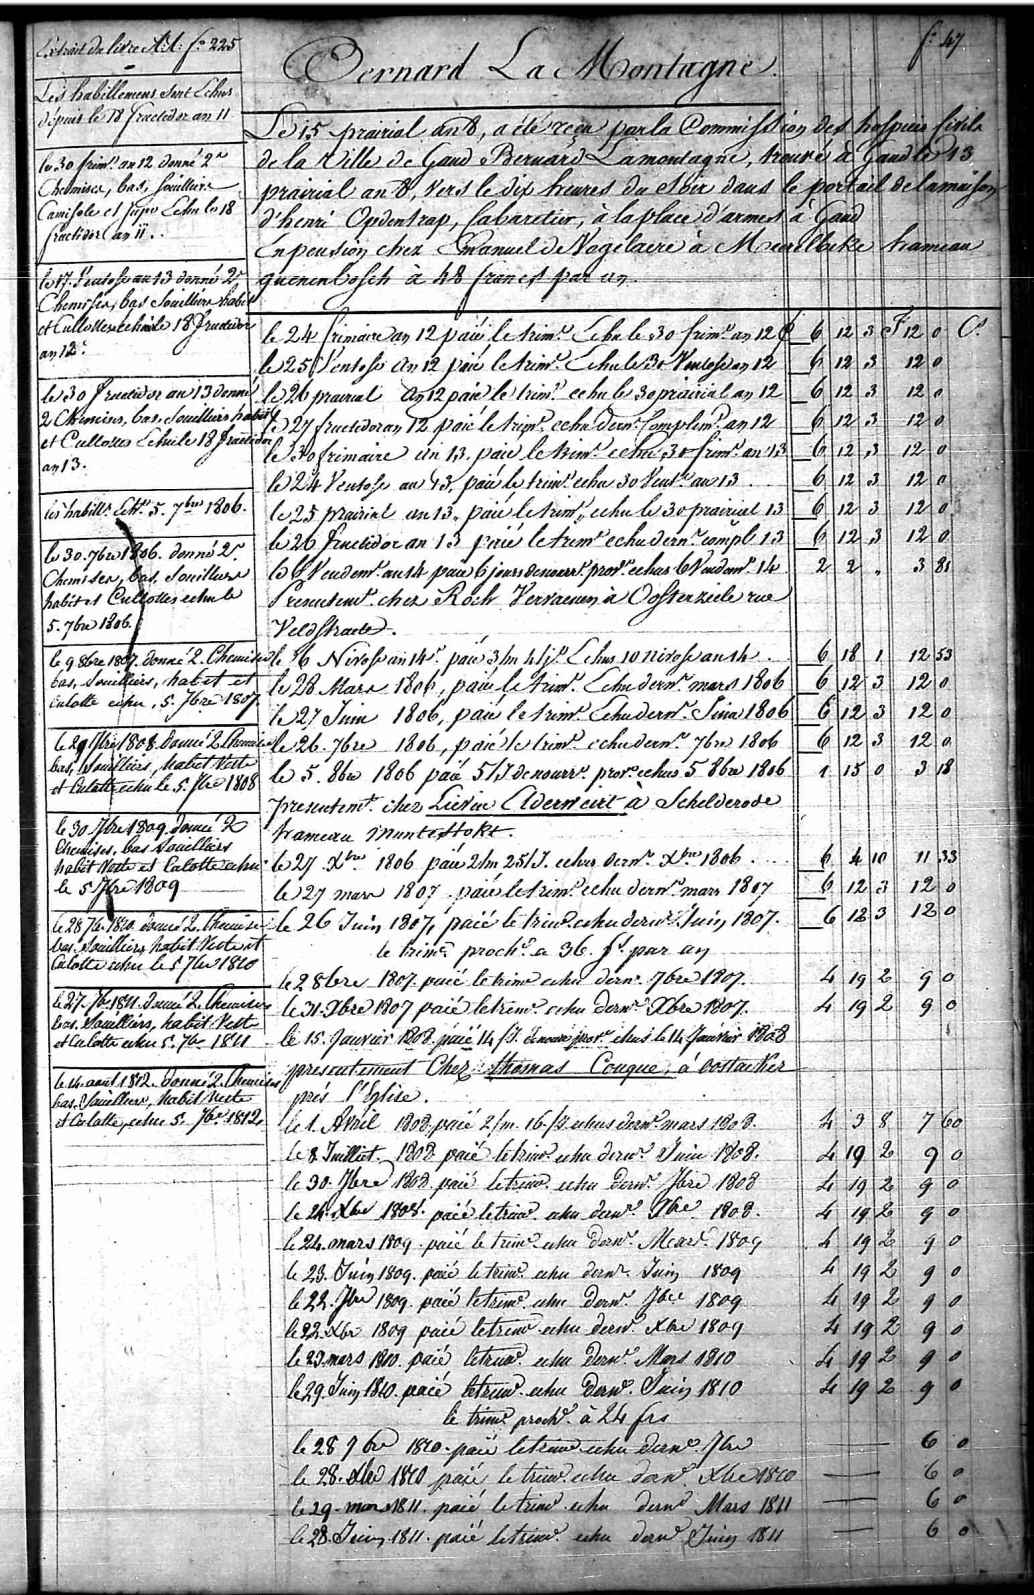 Extrait du livre A.A. fo 225
fo 47
Bernard La Montagne.
Les habillemens sont Echus
depuis le 18 fructidor an 11
le 30 frimre an 12 donné 2
Chemises, bas, souliers
Camisole et jupe Echu le 18
fructidor an 11.
le 17 Ventose an 13 donné 2
Chemises, bas souliers habit
et Culottes echu le 18 fructidor
an 12.
le 30 fructidor an 13 donné
2 Chemises, bas, souliers habit
et Culottes Echu le 18 fructidor
an 13.
5. 7bre 1806.
le 30. 7bre 1806. donné 2
Chemises, bas, souliers
habit et Culottes echu le
5. 7bre 1806.
le 9 8bre 1807. donné 2. Chemises
bas, souliers, habit et
culotte echu, 5. 7bre 1807.
le 29 7bre 1808. donné 2. Chemises
bas, souliers, habit Veste
et Culotte echu le 5. 7bre 1808
le 30 7bre 1809. donné 2
Chemises, bas souliers
habit Veste et Culotte echu
le 5 7bre 1809
le 28 7br. 1810. donné 2. Chemises
bas. Souilliers, habit Veste et
Culotte echu le 5 7bre 1810
le 27. 7br. 1811. donné 2. Chemises
bas. Souilliers, habit Vest
et Culotte echu 5. 7bre 1811
le 14. aout 1812. Donné 2. Chemises
bas. Souilliers, habit Veste
et Culotte, echu 5. 7bre 1812.
Le 15 prairial an 8, a été reçu par la Commission des hospices Civils
de la Ville de Gand Bernard Lamontagne, trouvé à Gand le 13
prairial an 8, vers le dix heures du Soir dans le portail de la maison
d'henri Opdentrap, Cabaretier, à la place d'armes à Gand
En pension chez Emanuel de Vogelaere à Meirelbeke hameau
quenenbosch à 48 francs par an.
le 24 frimaire an 12 paié le trimre Echu le 30 frimre an 12 £ 6 12 3 F 12 0 Cs
le 25 Ventose an 12 paié le trimre Echu le 30 Ventose an 12 6 12 3 12 0
le 26 prairial an 12 paié le trimre echu le 30 prairial an 12 6 12 3 12 0
le 27 fructidor an 12 paié le trimre echu dernr Complémre an 12 6 12 3 12 0
le 30 frimaire an 13. paié le trimre echu 30 frimre an 13 6 12 3 12 0
le 24 Ventose an 13, paié le trimre echu 30 Ventse an 13 6 12 3 12 0
le 25 prairial an 13. paié le trimre echu le 30 prairial 13 6 12 3 12 0
le 26 fructidor an 13 paié le trimre echu dernr compl. 13 6 12 3 12 0
le 6 Vendemre an 14 paié 6 jours de nourre provre echus 6 Vendemre 14 2 2 " 3 81
Presentemt. chez Roch Vervaenen à Oosterzeele rue
Veldstraete.
le 16 Nivose an 14e. paié 3/m 4/js. Echus 10 nivose an 14. 6 18 1 12 53
le 28 Mars 1806, paié le trimre. Echu dernr. mars 1806 6 12 3 12 0
le 27 Juin 1806, paié le trimre. Echu dernr. Juin 1806 6 12 3 12 0
le 26. 7bre 1806, paié le trimre. echu dernr. 7bre 1806 6 12 3 12 0
le 5. 8bre 1806 paié 5/J de nourre. provre echus 5 8bre 1806 1 15 0 3 18
presentemt. chez Lievin à Schelderode
hameau
le 27 Xbre 1806 paié 2/m 25/J. echus dernr. Xbre 1806. 6 4 10 11 33
le 27 mars 1807. paié le trimre. echu dernr. mars 1807 6 12 3 12 0
le 26 Juin 1807, paié le trimre. echu dernr. Juin 1807. 6 12 3 12 0
le trimre. prochn. a 36. fs. par an
le 2 8bre 1807. paié le trimre echu dernr. 7bre 1807. 4 19 2 9 0
le 31. Xbre 1807 paié le trimre. echu dernr. Xbre 1807. 4 19 2 9 0
le 15. Janvier 1808. paié 14/J. de nourre provre. echus le 14 Janvier 1808
presentement Chez thomas Couque, à oostacker
près l'Eglise.
le 1. Avril 1808, paié 2/m. 16/J. echus dernr. mars 1808. 4 3 8 7 60
le 8 Juilliet. 1808. paié le trimre. echu dernr. Juin 1808. 4 19 2 9 0
le 30. 7bre 1808. paié le trimre. echu dernr. 7bre 1808 4 19 2 9 0
le 24. Xbre 1808. paié le trimre. echu dernr. Xbre 1808. 4 19 2 9 0
le 24. mars 1809. paié le trimre. echu dernr. Mars. 1809 4 19 2 9 0
le 23. Juin 1809. paié le trimre. echu dernr. Juin 1809 4 19 2 9 0
le 22. 7bre 1809. paié le trimre. echu dernr. 7bre 1809 4 19 2 9 0
le 22. Xbr 1809 paié le trimre echu dernr. Xbre 1809 4 19 2 9 0
le 23. mars 1810. paié le trimre. echu dernr. Mars 1810 4 19 2 9 0
le 29. Juin 1810. paié le trimre. echu dernr. Juin 1810 4 19 2 9 0
le trimre prochn. à 24 frs
le 28 7bre 1810. paié le trimre echu dernr. 7bre 6 0
le 28. Xbre 1810 paié le trimre. echu dernr Xbre 1810 6 0
le 29. mars 1811. paié le trimre. echu dernr Mars 1811 6 0
le 28. Juin 1811. paié le trimre. echu dernr Juin 1811 6 0